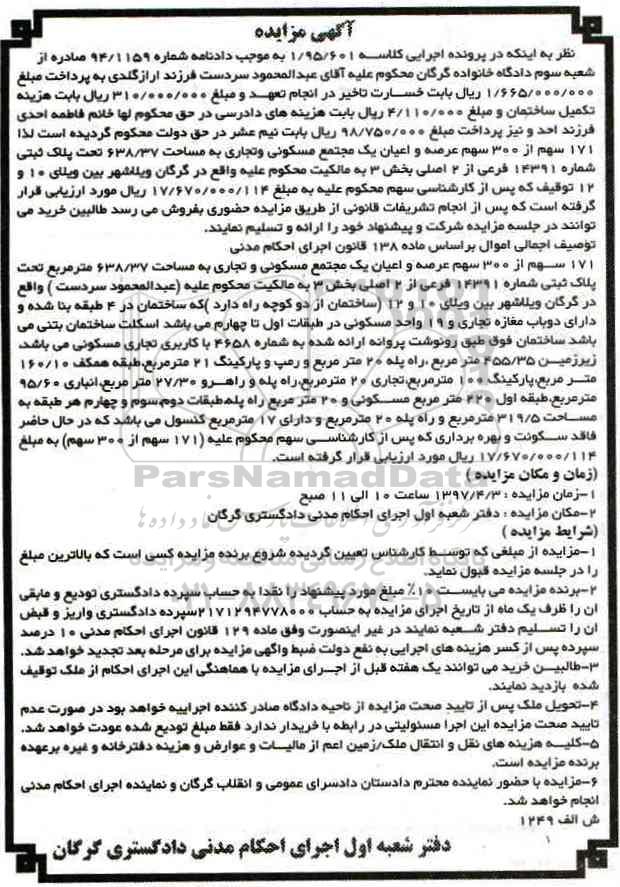 آگهی مزایده
نظر به اینکه در پرونده اجرایی کلاسه ۱/۹۵/۶۰۱ به موجب دادنامه شماره ۹۴/۱۱۵۹ صادره از
شعبه سوم دادگاه خانواده گرگان محکوم علیه آقای عبدالمحمود سردست فرزند ارازگلدی به پرداخت مبلغ
۱/۶۶۵/۰۰۰/۰۰۰ ریال بابت خسارت تاخیر در انجام تعهد و مبلغ ۳۱۰/۰۰۰/۰۰۰ ریال بابت هزینه
تکمیل ساختمان و مبلغ ۴/۱۱۰/۰۰۰ ریال بابت هزینه های دادرسی در حق محکوم لها خانم فاطمه احدی
فرزند احد و نیز پرداخت مبلغ ۹۸/۷۵۰/۰۰۰ ریال بابت نیم عشر در حق دولت محکوم گردیده است لذا
۱۷۱ سهم از ۳۰۰ سهم عرصه و اعیان یک مجتمع مسکونی وتجاری به مساحت ۶۳۸/۳۷ تحت پلاک ثبتی
شماره ۱۴۳۹۱ فرعی از ۲ اصلی بخش ۳ به مالکیت محکوم علیه واقع در گرگان ویلاشهر بین ویلای ۱۰ و
۱۲ توقیف که پس از کارشناسی سهم محکوم علیه به مبلغ ۱۷/۶۷۰/۰۰۰/۱۱۴ ریال مورد ارزیابی قرار
گرفته است که پس از انجام تشریفات قانونی از طریق مزایده حضوری بفروش می رسد طالبین خرید می
توانند در جلسه مزایده شرکت و پیشنهاد خود را ارائه و تسلیم نمایند.
توصیف اجمالی اموال براساس ماده ۱۳۸ قانون اجرای احکام مدنی
۱۷۱ سهم از ۳۰۰ سهم عرصه و اعیان یک مجتمع مسکونی و تجاری به مساحت ۶۳۸/۳۷ مترمربع تحت
پلاک ثبتی شماره ۱۴۳۹۱ فرعی از ۲ اصلی بخش ۳ به مالکیت محکوم علیه (عبدالمحمود سردست ) واقع
در گرگان ویلاشهر بین ویلای ۱۰ و ۱۲ (ساختمان از دو کوچه راه دارد )که ساختمان در ۴ طبقه بنا شده و
دارای دوباب مغازه تجاری و ۹ واحد مسکونی در طبقات اول تا چهارم می باشد اسکلت ساختمان بتنی می
باشد ساختمان فوق طبق رونوشت پروانه ارائه شده به شماره ۴۶۵۸ با کاربری تجاری مسکونی می باشد،
زیرزمین ۴۵۵/۳۵ متر مربع ،راه پله ۲۰ متر مربع و رمپ و پارکینگ ۲۱ مترمربع،طبقه همکف ۱۶۰/۱۰
متر مربع،پارکینگ ۱۰۰ مترمربع،تجاری ۲۰ مترمربع،راه پله و راهرو ۲۷/۳۰ متر مربع،انباری ۹۵/۶۰
مترمربع،طبقه اول ۲۲۰ متر مربع مسکونی و ۲۰ متر مربع راه پله،طبقات دوم،سوم و چهارم هر طبقه به
مساحت ۳۱۹/۵ مترمربع و راه پله ۲۰ مترمربع و دارای ۱۷ مترمربع کنسول می باشد که در حال حاضر
فاقد سکونت و بهره برداری که پس از کارشناسی سهم محکوم علیه (۱۷۱ سهم از ۳۰۰ سهم) به مبلغ
۱۷/۶۷۰/۰۰۰/۱۱۴ ریال مورد ارزیابی قرار گرفته است.
(زمان و مکان مزایده )
۱-زمان مزایده : ۱۳۹۷/۴/۳ ساعت ۱۰ الی ۱۱ صبح
۲-مکان مزایده : دفتر شعبه اول اجرای احکام مدنی دادگستری گرگان
(شرایط مزایده )
۱-مزایده از مبلغی که توسط کارشناس تعیین گردیده شروع برنده مزایده کسی است که بالاترین مبلغ
را در جلسه مزایده قبول نماید.
۲-برنده مزایده می بایست ۱۰٪ مبلغ مورد پیشنهاد را نقدا به حساب سپرده دادگستری تودیع و مابقی
ان را ظرف یک ماه از تاریخ اجرای مزایده به حساب ۲۱۷۱۲۹۴۷۷۸۰۰۰سپرده دادگستری واریز و قبض
ان را تسلیم دفتر شعبه نمایند در غیر اینصورت وفق ماده ۱۲۹ قانون اجرای احکام مدنی ۱۰ درصد
سپرده پس از کسر هزینه های اجرایی به نفع دولت ضبط واگهی مزایده برای مرحله بعد تجدید خواهد شد.
۳-طالبین خرید می توانند یک هفته قبل از اجرای مزایده با هماهنگی این اجرای احکام از ملک توقیف
شده بازدید نمایند.
۴-تحویل ملک پس از تایید صحت مزایده از ناحیه دادگاه صادر کننده اجراییه خواهد بود در صورت عدم
تایید صحت مزایده این اجرا مسئولیتی در رابطه با خریدار ندارد فقط مبلغ تودیع شده عودت خواهد شد.
۵-کلیه هزینه های نقل و انتقال ملک/زمین اعم از مالیات و عوارض و هزینه دفترخانه و غیره برعهده
برنده مزایده است.
۶-مزایده با حضور نماینده محترم دادستان دادسرای عمومی و انقلاب گرگان و نماینده اجرای احکام مدنی
انجام خواهد شد.
ش الف ۱۲۴۹
۱
دفتر شعبه اول اجرای احکام مدنی دادگستری گرگان
ParsNamadData